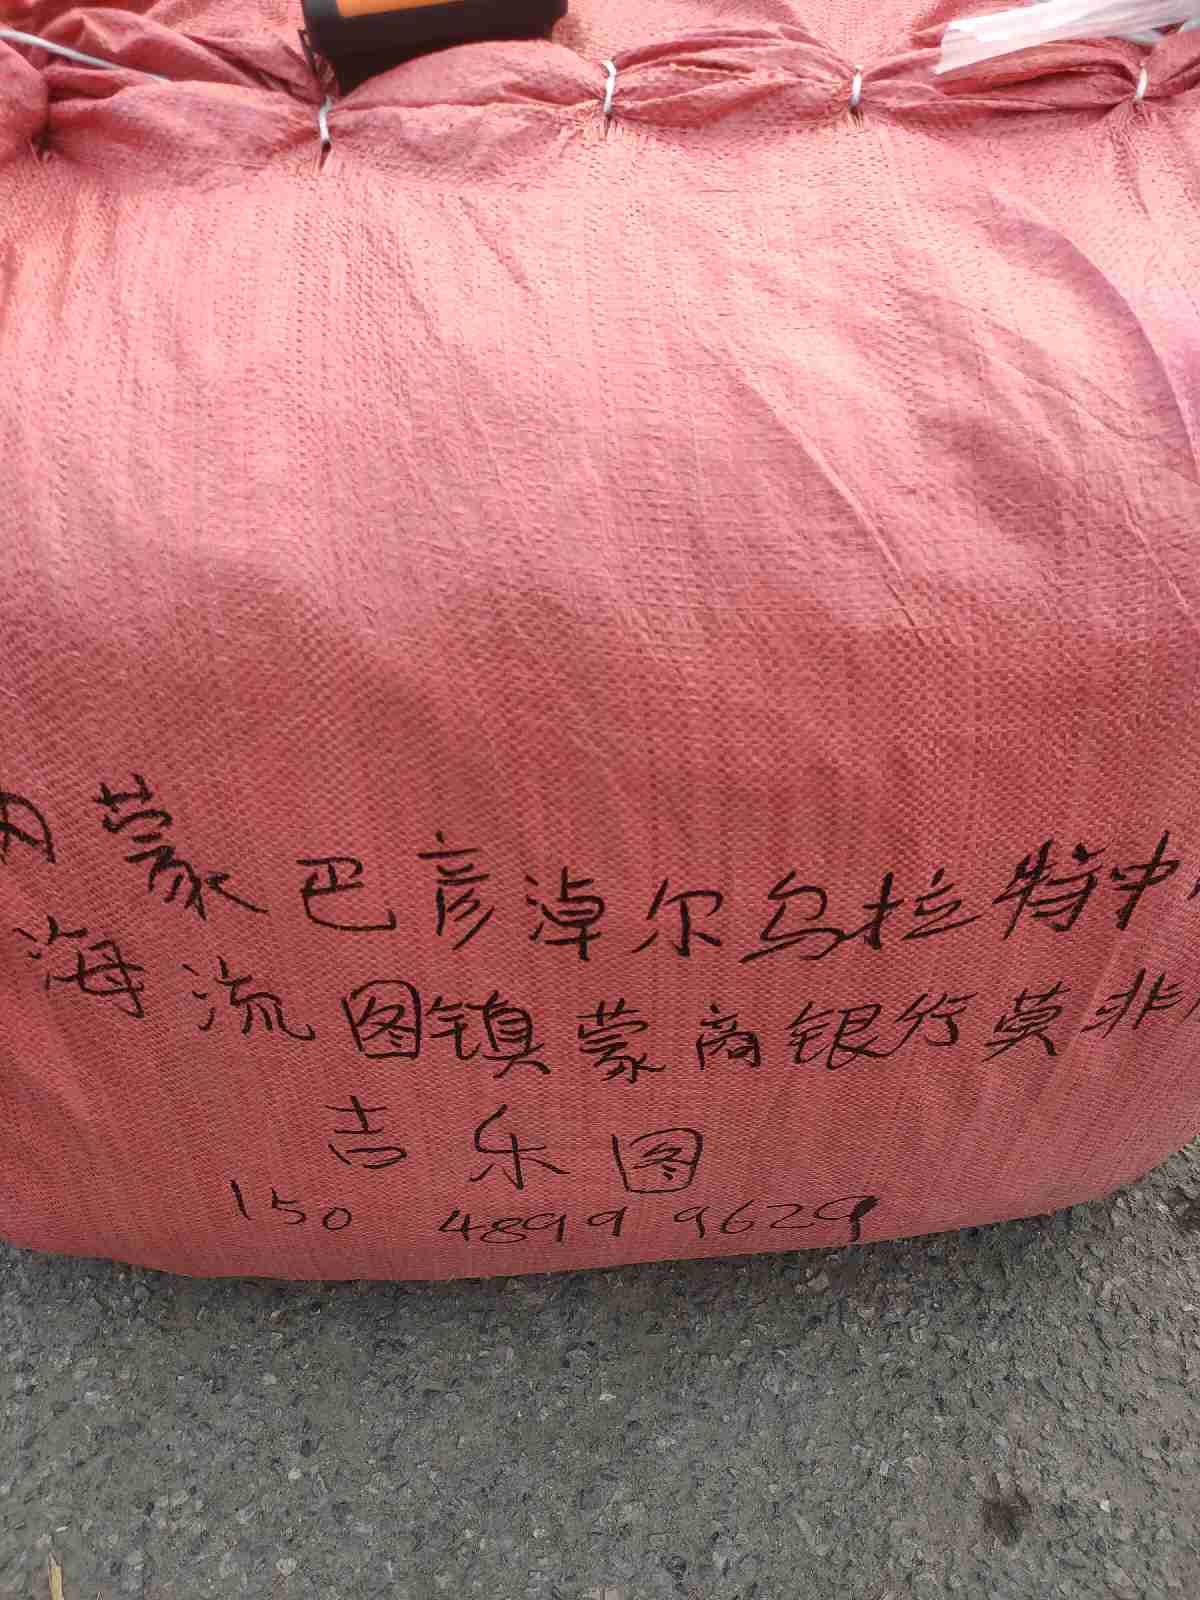 内蒙巴彦淖尔乌拉特中
海流图镇蒙商银行莫非
吉乐图
150 4899 9629